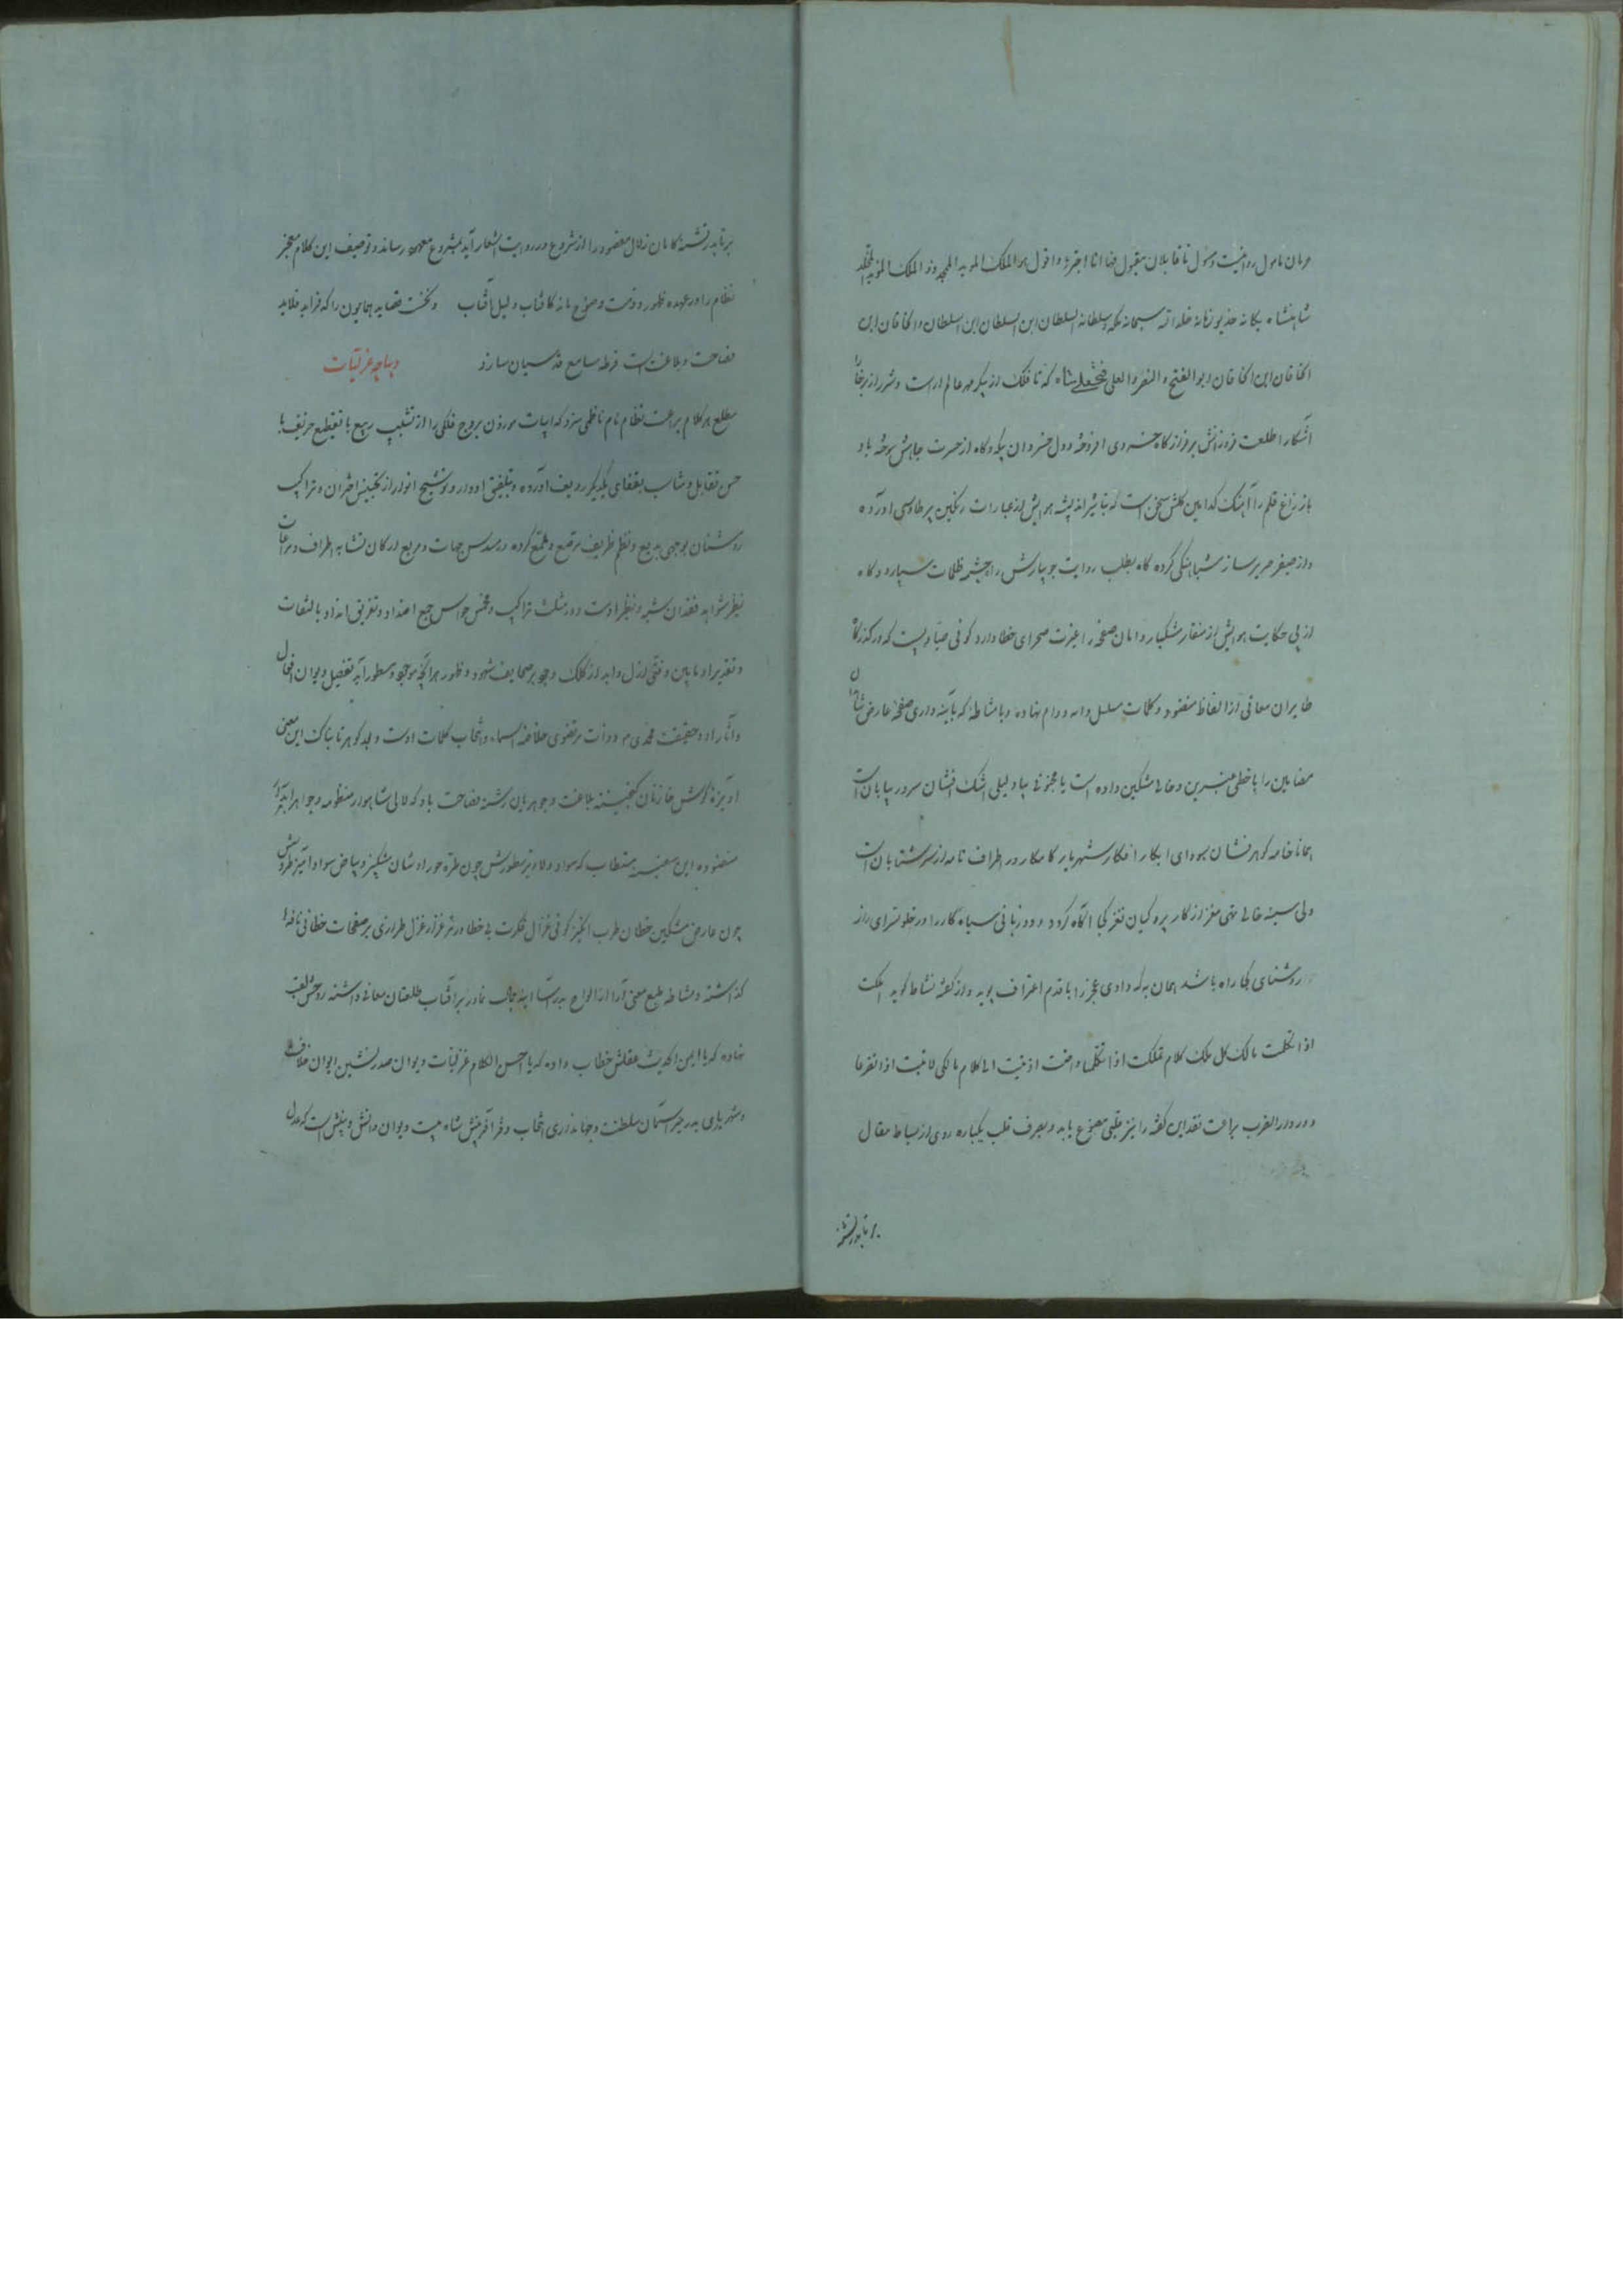 شاهنشاه یگانه خدیو زمانه خلد الله سبحانه ملکه و سلطانه السلطان ابن السلطان ابن السلطان والخاقان ابن
الخاقان ابن الخاقان ابوالفتح و النصر و العلی فتحعلی شاه که تا فلک از پیکر مهر عالم آراست و شرر از برخارا
آشکارا طلعت فروزانش بر فراز گاه خسروی افروخته و دل خسروان یکه و گاه از حسرت جاهش سوخته باد
باز زاغ قلم را آهنگ کدامین گلشن سخن است که بتاثیر اندیشه هوایش از عبارات رنگین پر طاوسی آورده
و از صفیر صریر ساز شباهنگی کرده گاه بطلب روایت جویبارش راه چشمه ظلمات سپارد و گاه
از پی حکایت هوایش از منقار مشکبار دامان صفحه را غیرت صحرای خطا دارد گوئی صیادیست که در گذرگاه
طایران معانی از الفاظ منضود و کلمات مسلسل دانه و دام نهاده و یا مشاطه که بآینه داری صفحه عارض شاهدان
مضامین را با خطی عنبرین و خالی مشکین داده است یا مجنونی بیاد لیلی اشک افشان سر در بیابان است
همانا خامه گوهر فشان بسودای ابکار افکار شهریار کامکار در اطراف نامه از سر شتابان است
ولی سینه خالی تهی مغز از کار پردگیان نغز کی آگاه گردد و دو زبانی سیاه کار را در خلوتسرای راز
روشنای کی راه باشد همان به که وادی عجز را با قدم اعتراف پوید و از گفته نشاط گوید
اذا تکلمت مالک کل ملک کلام تملکت اذا تکلمها
و در دار الضرب براعت نقد این گفته را نیز قلبی مصنوع یابد و بصرف قلب یکباره روی از بساط مقال
بر تابد تشنه
برتابد تشنه کامان زلال مقصود را از شروع در روایت اشعار آبدار بمشروع معهود رساند و توصیف این کلام معجز
نظام را در عهده ظهور و ذمت وضوح ماند کافتاب دلیل آفتاب و نخست قصاید همایون را که فراید قلاید
فصاحت و بلاغت است قرطه مسامع قدسیان سازد دیباچه غزلیات
مطلع هر کلام براعت نظام نام ناظمی سزد که ابیات موزون بروج فلکی را از تشبیب ربیع با تقطیع خریف با
حسن تقابل و تناسب بقفای یکدیگر ردیف آورده و بتلفیق ادوار و توشیح انوار از تجنیس اختران و تراکیب
روشنان بوجهی بدیع و نظم ظریف مرصع و ملمع کرده در مسدس جهات و مربع ارکان تشابه اطراف و مراعات
نظیر شواهد فقدان شبیه و نظیر اوست و در مثلث تراکیب و مخمس حواس جمع اضداد و تفریق انداد بالتفات
و تقدیر او مابین وقتی ازل و ابد از کلک وجود بر صحایف شهود و ظهور هر آنچه موجود و مسطور آید تفصیل دیوان افعال
و آثار او و حقیقت محمدی و ذات مرتضوی خلاصه اسماء و انتخاب کلمات اوست و بعد گوهر تابناک این معنی
آویزه گوش خازنان گنجینه بلاغت و جوهریان رشته فصاحت باد که لالی شاهوار منظومه و جواهر آبدار
منضوده این سفینه مستطاب که سواد دلاویز سطورش چون طره حوراوشان مشکبیز و بیاض سواد آمیز طروسش
چون عارض مشکین خطان طرب انگیز گوئی غزال فکرت بی خطا در مرغزار غزل طرازی بر صفحات خطائی نافها
گذاشته و مشاطه طبع معنی آرا از الواح آینه جمال نما در برابر آفتاب طلعتان معانی داشته روحش لقب
نهاده که یا ایمن الحدیث عقلش خطاب داده که یا احسن الکلام غزلیات دیوان صدر نشین ایوان خلافت
و شهریاری بدر جبر آسمان سلطنت و جهانداری انتخاب دفتر آفرینش شاه بیت دیوان دانش و بینش است که